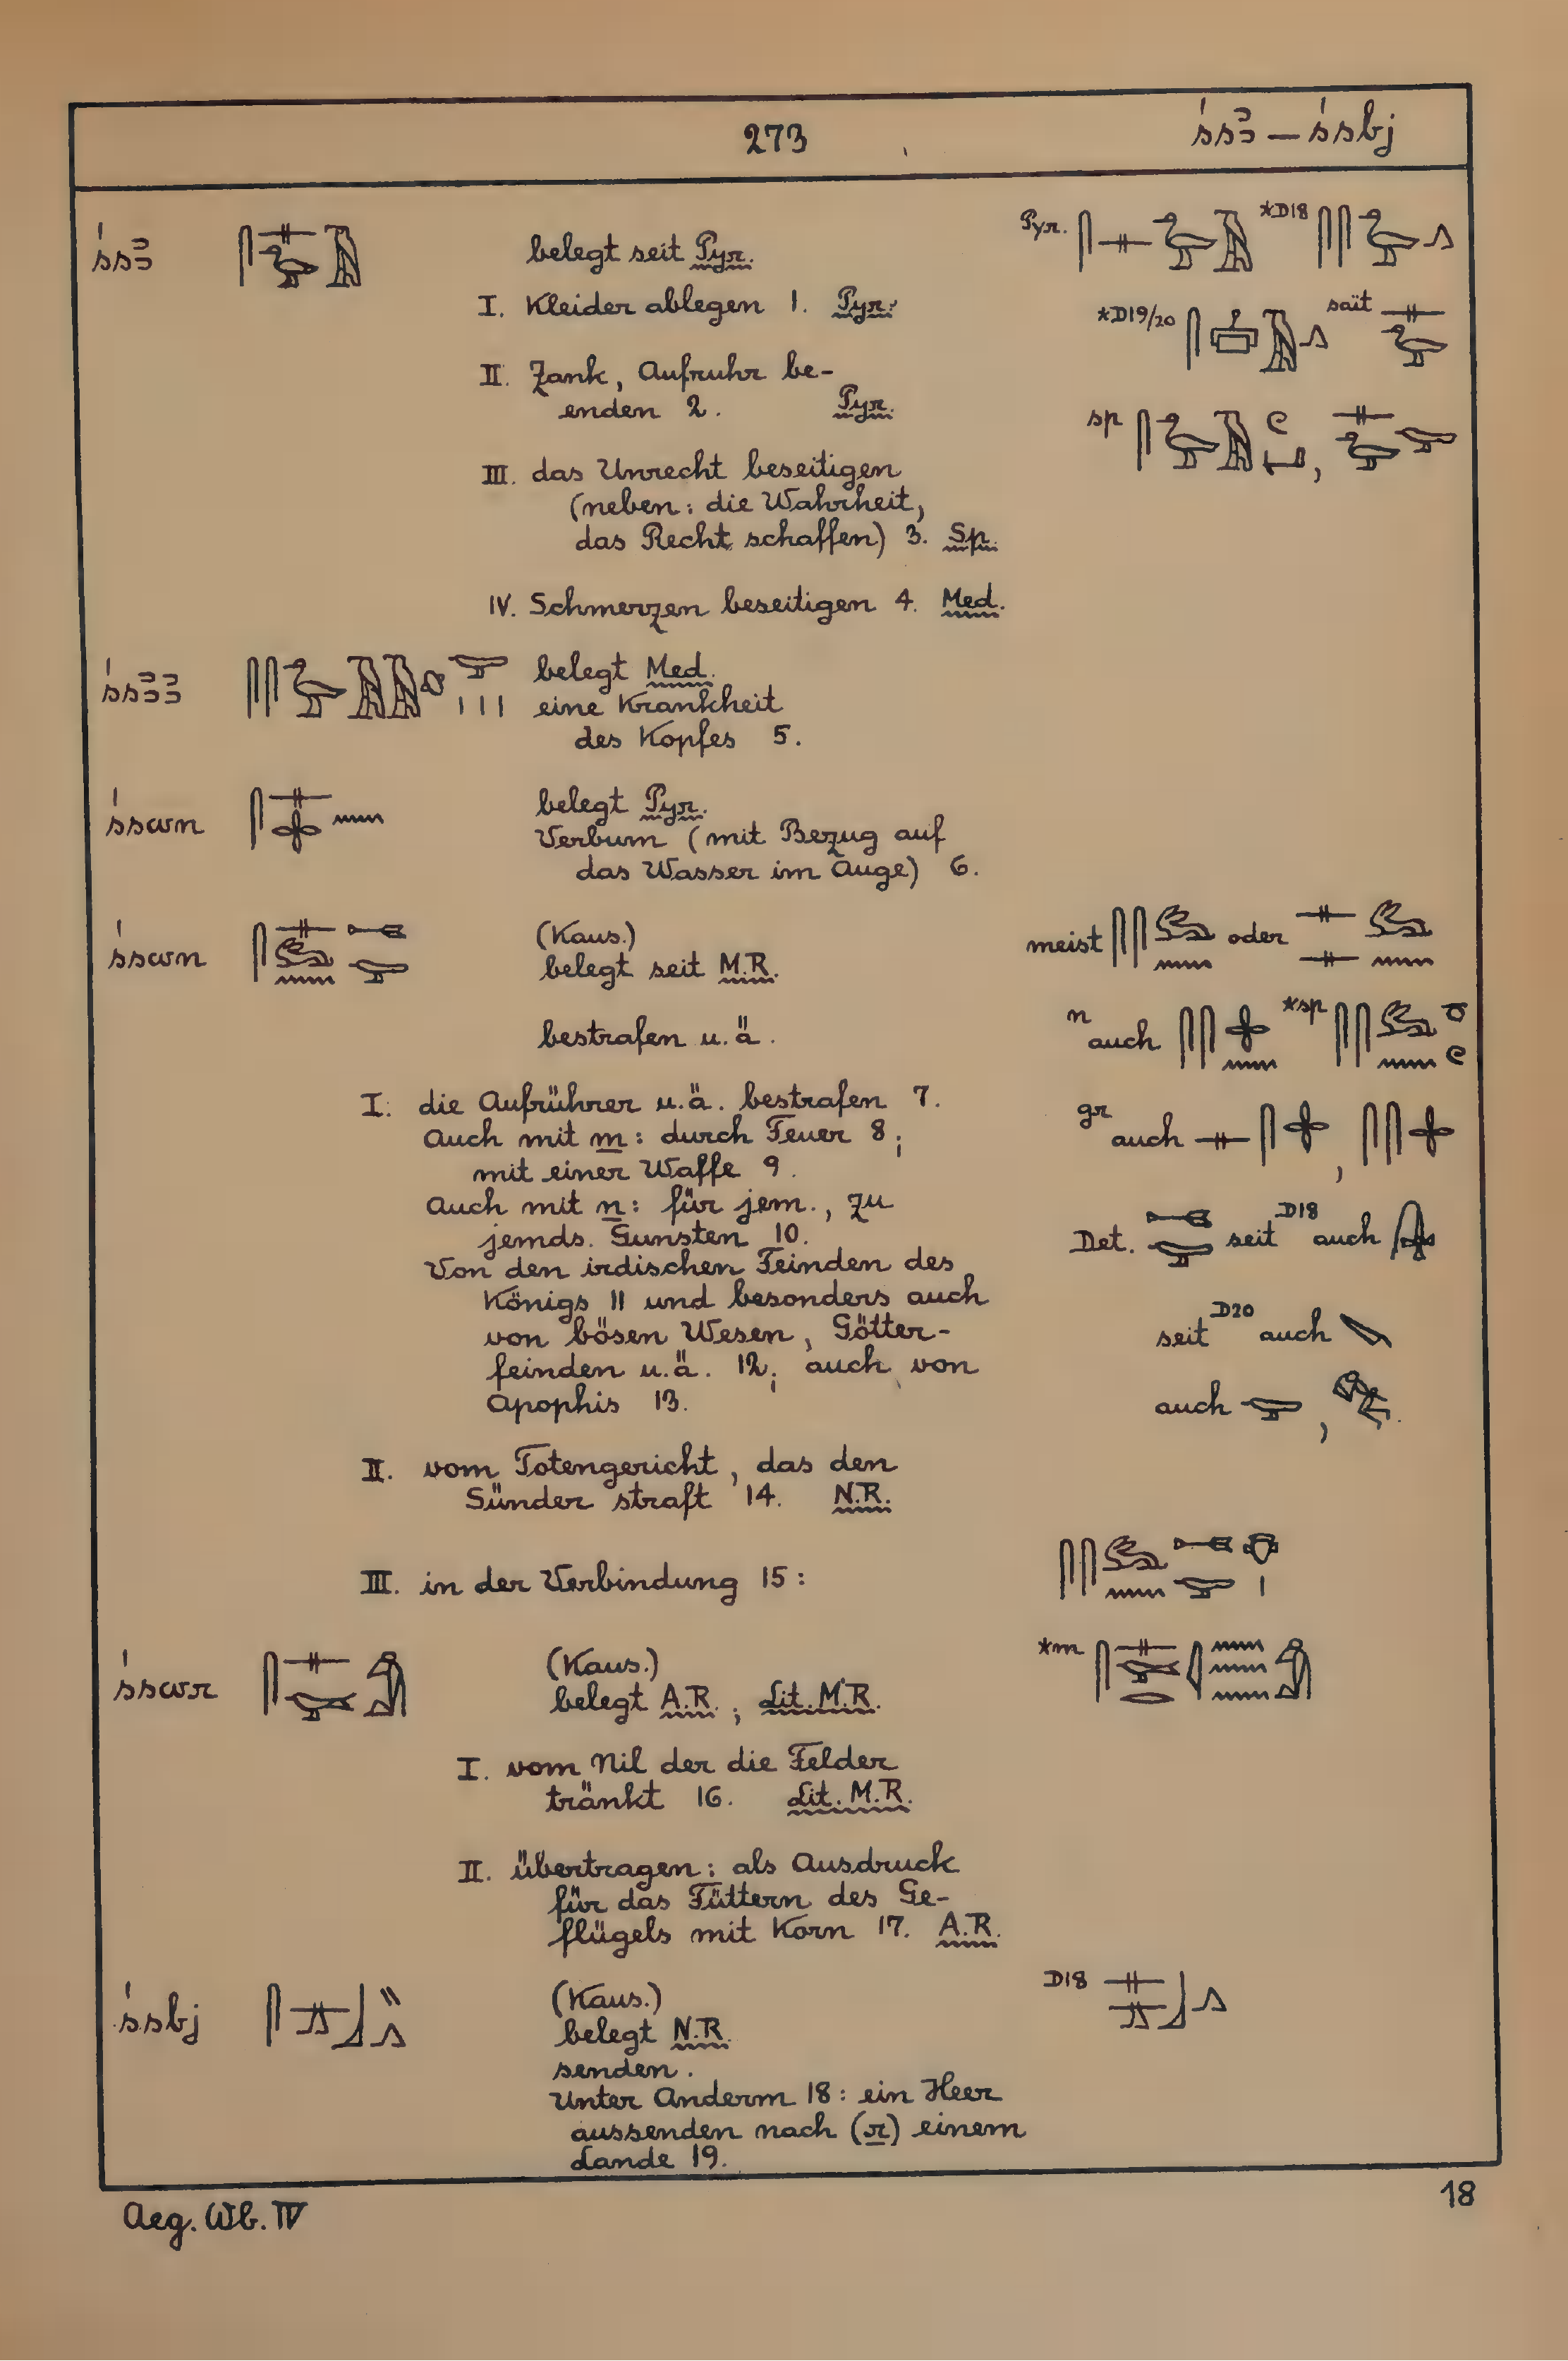 273 śsꜣ – śsbj
śsꜣ belegt seit Pyr. Pyr. *D18
I. Kleider ablegen 1. Pyr. *D19/20 saït
II. Zank, Aufruhr be-
enden 2. Pyr. sp ,
III. das Unrecht beseitigen
(neben: die Wahrheit,
das Recht schaffen) 3. Sp.
IV. Schmerzen beseitigen 4. Med.
śsꜣꜣ belegt Med.
eine Krankheit
des Kopfes 5.
śswn belegt Pyr.
Verbum (mit Bezug auf
das Wasser im Auge) 6.
śswn (Kaus.) meist oder
belegt seit M.R.
bestrafen u.ä. n auch *sp
I. die Aufrührer u.ä. bestrafen 7.
Auch mit m: durch Feuer 8; gr auch ,
mit einer Waffe 9.
Auch mit n: für jem., zu
jemds. Gunsten 10. Det. seit D18 auch
Von den irdischen Feinden des
Königs 11 und besonders auch
von bösen Wesen, Götter- seit D20 auch
feinden u.ä. 12; auch von
Apophis 13. auch , .
II. vom Totengericht, das den
Sünder straft 14. N.R.
III. in der Verbindung 15:
śswr (Kaus.) *m
belegt A.R.; Lit. M.R.
I. vom Nil der die Felder
tränkt 16. Lit. M.R.
II. übertragen: als Ausdruck
für das Füttern des Ge-
flügels mit Korn 17. A.R.
śsbj (Kaus.) D18
belegt N.R.
senden.
Unter Anderm 18: ein Heer
aussenden nach (r) einem
Lande 19.
Aeg. Wb. IV 18